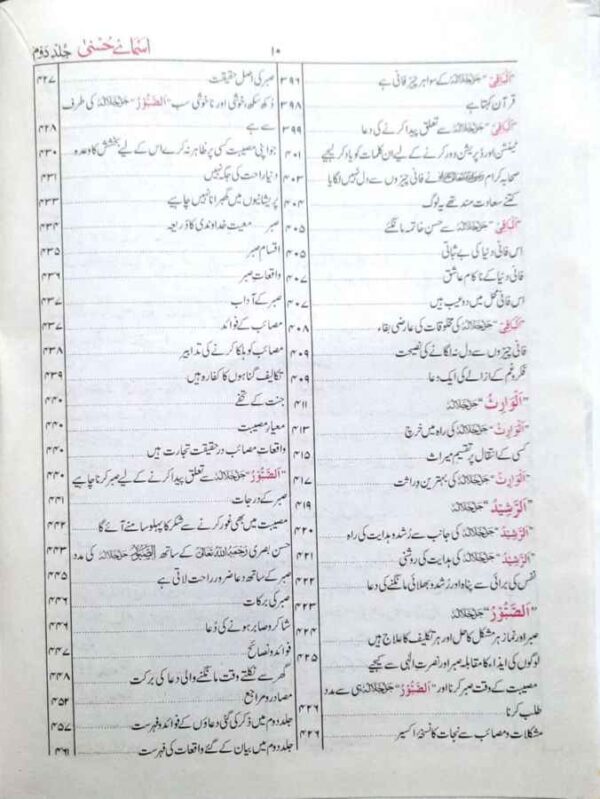 اسمائے حُسنیٰ جلد دوم
۱۰
"اَلْبَاقِیْ" جَلَّ جَلَالُہٗ کے سوا ہر چیز فانی ہے ۳۹۶
قرآن کہتا ہے ۳۹۸
"اَلْبَاقِیْ" جَلَّ جَلَالُہٗ سے تعلق پیدا کرنے کی دعا ۳۹۹
ٹینشن اور ڈپریشن دور کرنے کے لیے ان کلمات کو یاد کر لیجیے ۴۰۱
صحابہ کرام نے فانی چیزوں سے دل نہیں لگایا ۴۰۳
کتنے سعادت مند تھے یہ لوگ ۴۰۴
"اَلْبَاقِیْ" جَلَّ جَلَالُہٗ سے حسن خاتمہ مانگئے ۴۰۵
اس فانی دنیا کی بے ثباتی ۴۰۵
فانی دنیا کے ناکام عاشق ۴۰۷
اس فانی محل میں دو عیب ہیں ۴۰۷
"اَلْبَاقِیْ" جَلَّ جَلَالُہٗ کی مخلوقات کی عارضی بقاء ۴۰۸
فانی چیزوں سے دل نہ لگانے کی نصیحت ۴۰۹
فکر و غم کے ازالے کی ایک دعا ۴۰۹
"اَلْوَارِثُ" جَلَّ جَلَالُہٗ ۴۱۱
"اَلْوَارِثُ" جَلَّ جَلَالُہٗ کی راہ میں خرچ ۴۱۳
کسی کے انتقال پر تقسیم میراث ۴۱۵
"اَلْوَارِثُ" جَلَّ جَلَالُہٗ کی بہترین وراثت ۴۱۷
"اَلرَّشِیْدُ" جَلَّ جَلَالُہٗ ۴۱۹
"اَلرَّشِیْدُ" جَلَّ جَلَالُہٗ کی جانب سے رُشد و ہدایت کی راہ ۴۲۰
"اَلرَّشِیْدُ" جَلَّ جَلَالُہٗ کی ہدایت کی روشنی ۴۲۱
نفس کی برائی سے پناہ اور رُشد و بھلائی مانگنے کی دعا ۴۲۲
"اَلصَّبُوْرُ" جَلَّ جَلَالُہٗ ۴۲۳
صبر اور نماز ہر مشکل کا حل اور ہر تکلیف کا علاج ہیں ۴۲۴
لوگوں کی ایذاء کا مقابلہ صبر اور نصرت الٰہی سے کیجیے ۴۲۵
مصیبت کے وقت صبر کرنا اور "اَلصَّبُوْرُ" جَلَّ جَلَالُہٗ ہی سے مدد
طلب کرنا ۴۲۶
مشکلات و مصائب سے نجات کا نسخۂ اکسیر ۴۲۶
صبر کی اصل حقیقت ۴۲۷
دُکھ سُکھ، خوشی اور ناخوشی سب "اَلصَّبُوْرُ" جَلَّ جَلَالُہٗ کی طرف
سے ہے ۴۲۸
جو اپنی مصیبت کسی پر ظاہر نہ کرے اس کے لیے بخشش کا وعدہ ۴۳۰
دنیا راحت کی جگہ نہیں ۴۳۱
پریشانیوں میں گھبرانا نہیں چاہیے ۴۳۳
صبر معیت خداوندی کا ذریعہ ۴۳۴
اقسام صبر ۴۳۵
واقعات صبر ۴۳۶
صبر کے آداب ۴۳۷
مصائب کے فوائد ۴۳۷
مصائب کو ہلکا کرنے کی تدابیر ۴۳۸
تکالیف گناہوں کا کفارہ ہیں ۴۳۹
جنت کے تحفے ۴۴۰
معیار مصیبت ۴۴۰
واقعات مصائب درحقیقت تجارت ہیں
"اَلصَّبُوْرُ" جَلَّ جَلَالُہٗ سے تعلق پیدا کرنے کے لیے صبر کرنا چاہیے ۴۴۰
صبر کے درجات ۴۴۱
مصیبت میں بھی غور کرنے سے شکر کا پہلو سامنے آئے گا ۴۴۲
حسن بصری رَحِمَہُ اللہُ تَعَالٰی کے ساتھ اَلصَّبُوْرُ جَلَّ جَلَالُہٗ کی مدد ۴۴۳
صبر کے ساتھ دعا ضرور راحت لاتی ہے ۴۴۵
صبر کی برکات ۴۴۶
شاکر و صابر ہونے کی دُعا ۴۴۶
فوائد و نصائح ۴۴۷
گھر سے نکلتے وقت مانگنے والی دعا کی برکت ۴۴۸
مصادر و مراجع ۴۵۲
جلد دوم میں ذکر کی گئی دعاؤں کے فوائد و فہرست ۴۵۷
جلد دوم میں بیان کے گئے واقعات کی فہرست ۴۶۱